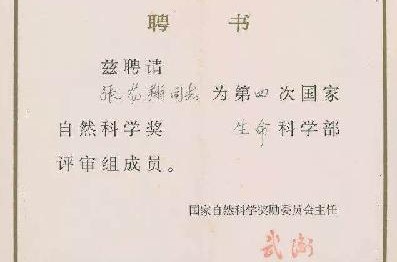 聘书
兹聘请
張 同志 为第四次国家
自然科学奖 生命科学部
评审组成员。
国家自然科学奖励委员会主任
武衡